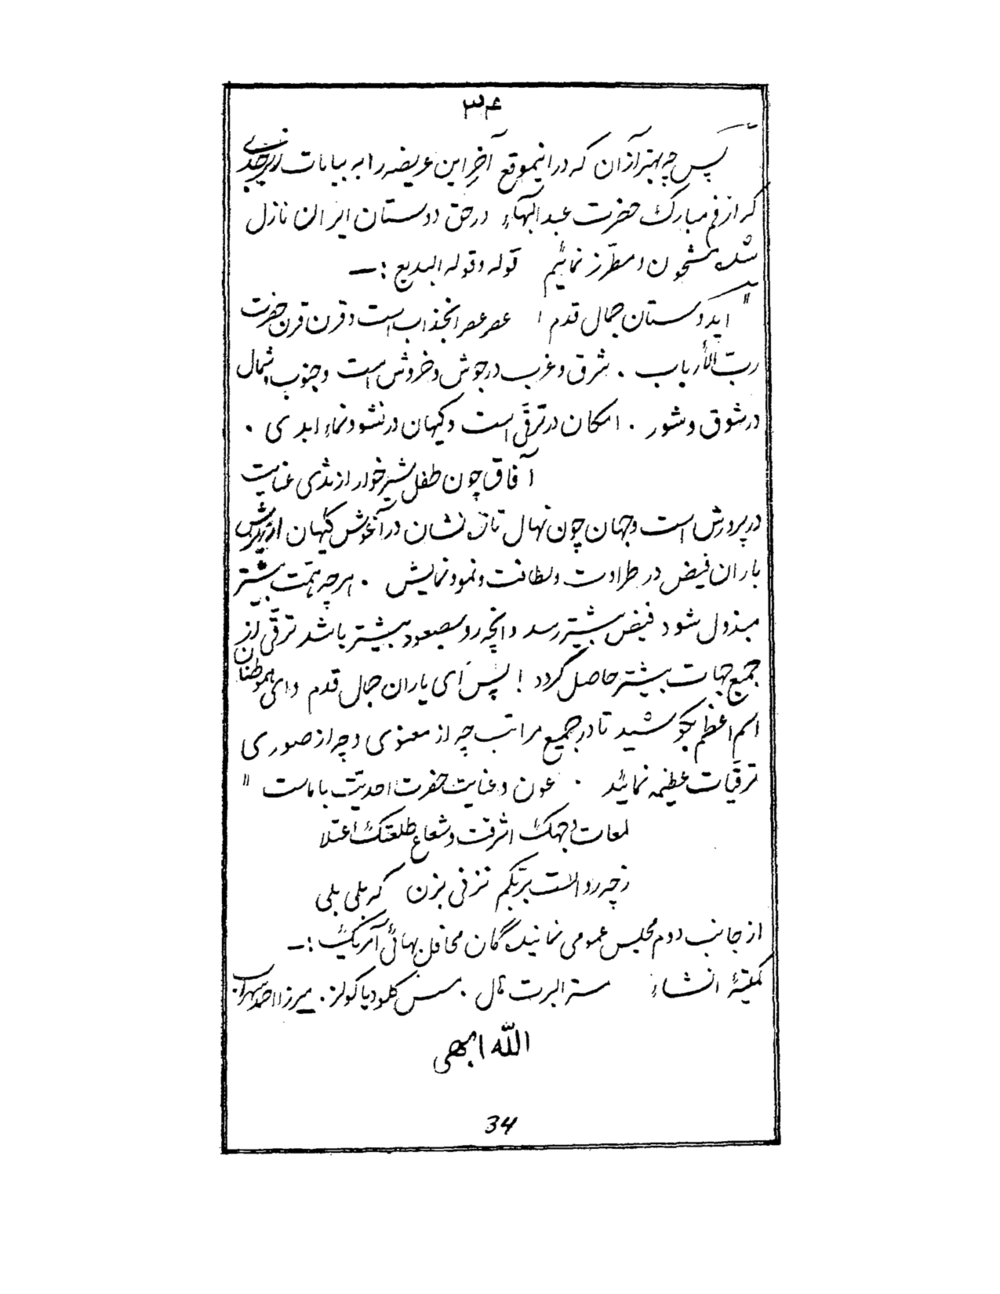 ۳۴
پس چه بهتر از آن که در اینموقع آخر این عریضه را به بیانات زیر چندی
که از فم مبارک حضرت عبدالبهآء در حق دوستان ایران نازل
شده مشحون و مطرّز نمائیم قوله و قوله البدیع :ــ
" ایدوستان جمال قدم ! عصر عصر انجذاب است و قرن قرن حضرت
ربّ الأرباب . شرق و غرب در جوش و خروش است و جنوب و شمال
در شوق و شور . امکان در ترقّی است و کیهان در نشو و نماء ابدی .
آفاق چون طفل شیرخوار از ثدی عنایت
در پرورش است و جهان چون نهال تازه نشان در آغوش کیهان از ریزش
باران فیض در طراوت و لطافت و نمو و نمایش . هر چه همّت بیشتر
مبذول شود فیض بیشتر رسد و آنچه رو بصعود بیشتر باشد ترقّی از
جمیع جهات بیشتر حاصل گردد ! پس ای یاران جمال قدم و ای هموطنان
اسم اعظم بکوشید تا در جمیع مراتب چه از معنوی و چه از صوری
ترقیّات عظیمه نمائید . عون و عنایت حضرت احدیّت با ماست "
لمعات وجهک اشرقت و شعاع طلعتک اعتلا
ز چه رو الست بربّکم نزنی بزن که بلی بلی
از جانب دوم مجلس عمومی نمایندگان محافل بهائی آمریک :ــ
کمیتهٔ انشاء مستر البرت هال . مسس کلودیا کولز . میرزا احمد سهراب
الله ابهی
34